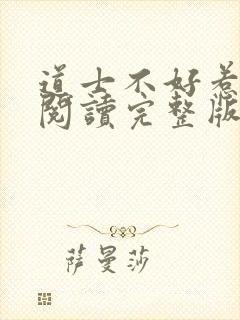 道士不好惹
閱讀完整版
萨曼莎